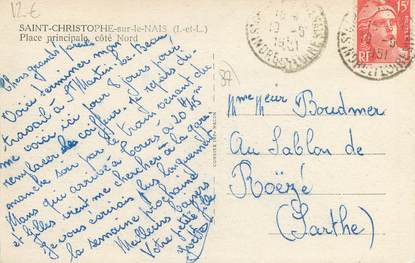 12 €
SAINT-CHRISTOPHE-sur-le-NAIS (I.-et-L.)
Place principale, côté Nord
Chers grands parents
Voici terminer mon
travail à St Martin-le-Beau,
me voici ici pour 8 jours pour
remplacer le coiffeur. Je repars di-
manche soir par le train venant du
Mans qui arrive à Tours à 20 h
et Gilles vient me chercher à la gare.
Je vous écrirais plus longuement
la semaine prochaine
Meilleurs baisers
Votre petite fille
37
Mme Boudmer
Au Sablon de
Roëzé
(Sarthe)
15F
RF
1951